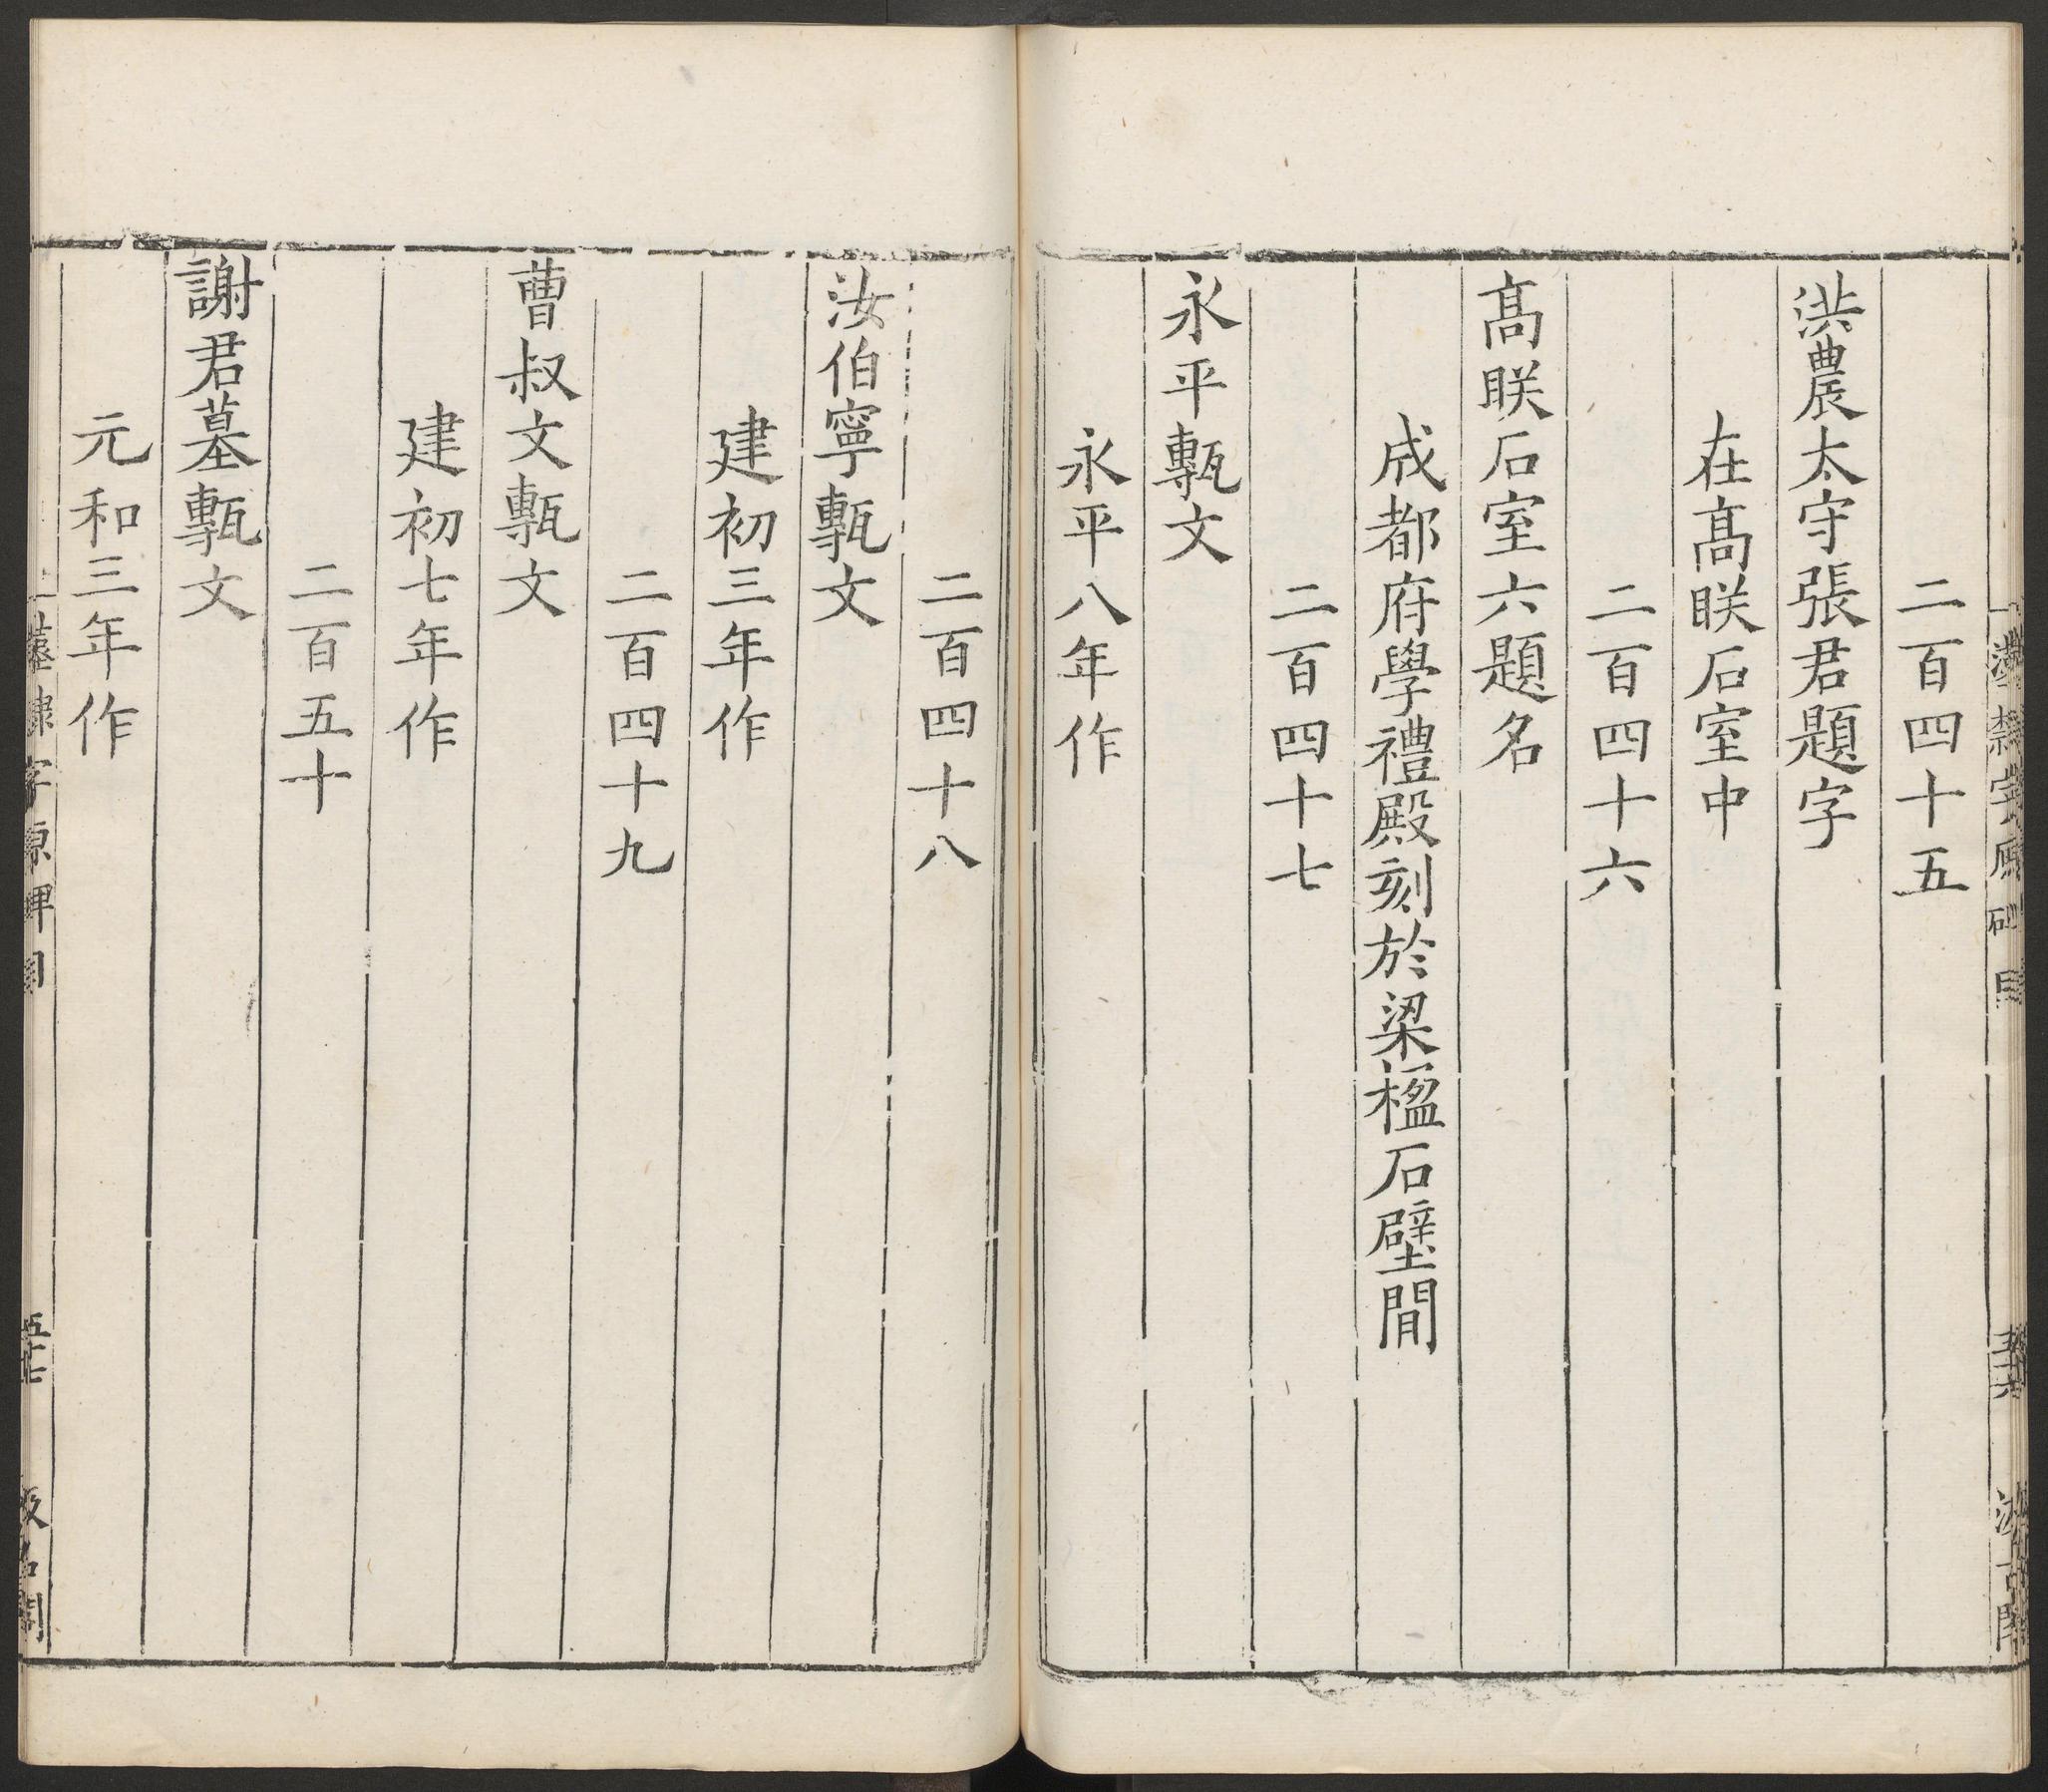 二百四十五
洪農太守張君題字
在髙眹石室中
二百四十六
髙眹石室六題名
成都府學禮殿刻於梁楹石壁間
二百四十七
永平甎文
永平八年作
二百四十八
汝伯寧甎文
建初三年作
二百四十九
曹叔文甎文
建初七年作
二百五十
謝君墓甎文
元和三年作